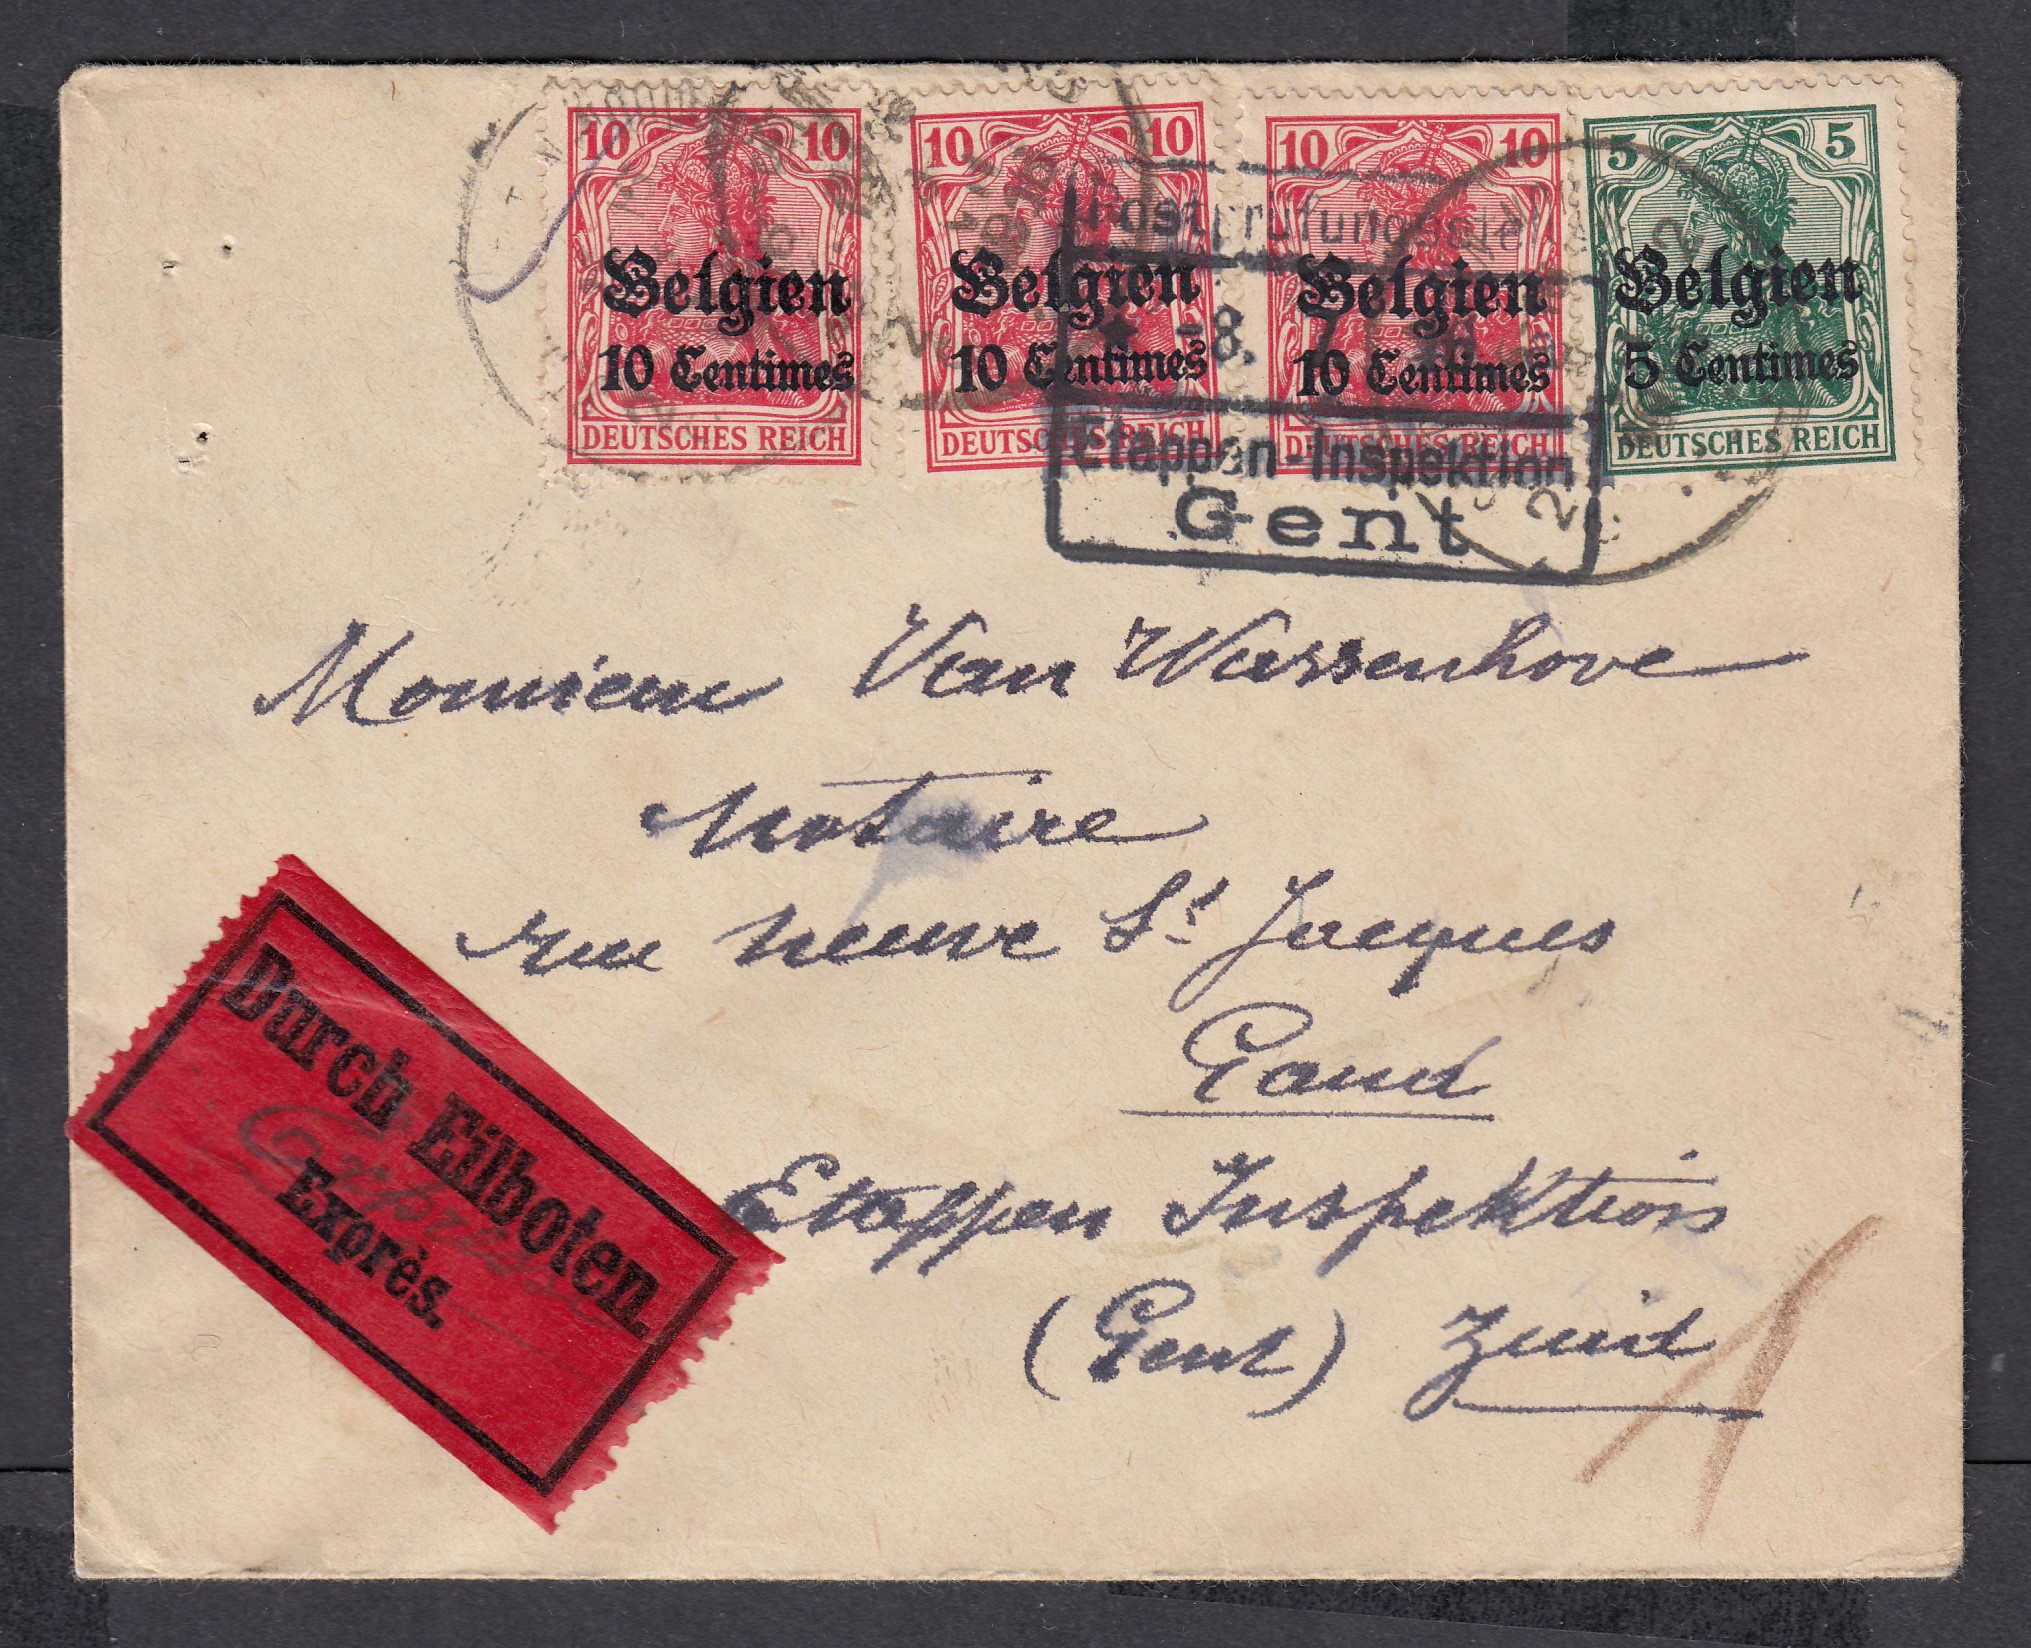 10 10
Belgien
10 Centimes
DEUTSCHES REICH
10 10
Belgien
10 Centimes
DEUTSCHES REICH
10 10
Belgien
10 Centimes
DEUTSCHES REICH
5 5
Belgien
5 Centimes
DEUTSCHES REICH
Postprüfungsstelle
-8. 7
Etappen-Inspektion
Gent
Monsieur Van Wassenhove
Notaire
rue neuve St Jacques
Gand
Etappen Inspektion
(Gent) Zuid
Durch Eilboten.
Exprès.
Express